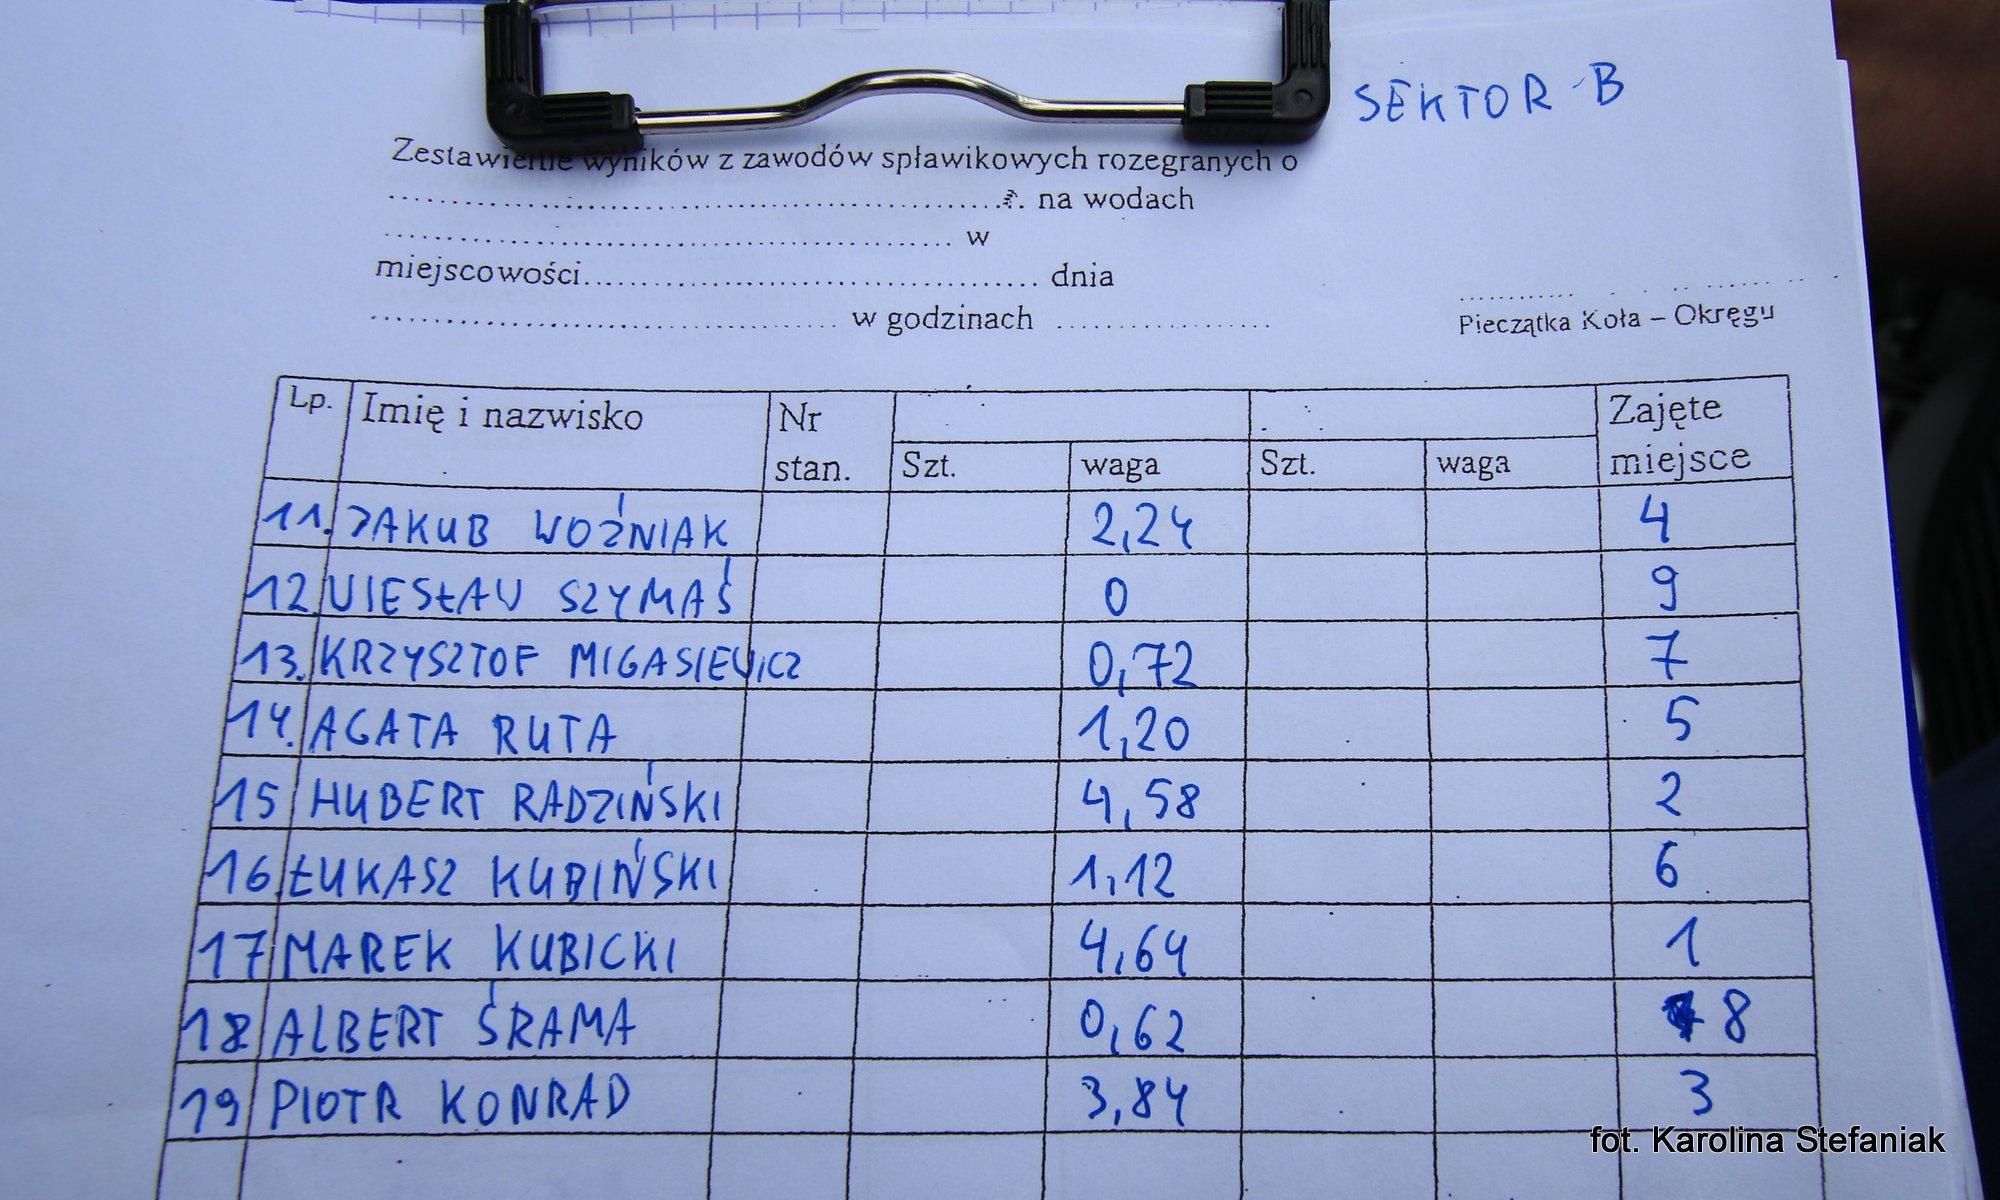 SEKTOR B
Zestawienie wyników z zawodów spławikowych rozegranych o
........................................ na wodach
........................................ w
miejscowości........................................ dnia
........................................ w godzinach ....................
....................
Pieczątka Koła – Okręgu
Lp. Imię i nazwisko Nr stan. Szt. waga Szt. waga Zajęte miejsce
11. JAKUB WOŹNIAK 2,24 4
12. WIESŁAW SZYMAŚ 0 9
13. KRZYSZTOF MIGASIEWICZ 0,72 7
14. AGATA RUTA 1,20 5
15 HUBERT RADZIŃSKI 4,58 2
16. ŁUKASZ KUBIŃSKI 1,12 6
17 MAREK KUBICKI 4,64 1
18 ALBERT ŚRAMA 0,62 8
19 PIOTR KONRAD 3,84 3
fot. Karolina Stefaniak